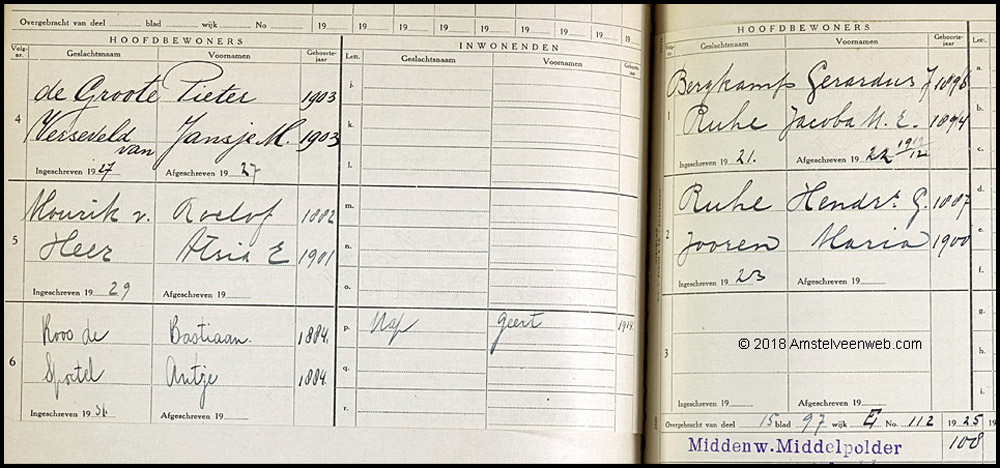 Overgebracht van deel blad wijk No 19 19 19 19 19 19 19
HOOFDBEWONERS INWONENDEN
Volg-nr. Geslachtsnaam Voornamen Geboorte-jaar Lett. Geslachtsnaam Voornamen Geboorte-jaar
de Groote Pieter 1903 j.
4
Verseveld van Jansje M. 1903 k.
Ingeschreven 1927 Afgeschreven 1927 l.
Mourik v. Roelof 1882 m.
5 Heer Atsia E 1901 n.
Ingeschreven 1929 Afgeschreven 19 o.
Roos de Bastiaan. 1884. p. Nap Geert 1914
6 Sportel Antje 1884. q.
Ingeschreven 1931 Afgeschreven 19 r.
HOOFDBEWONERS
Volg-nr. Geslachtsnaam Voornamen Geboorte-jaar Lett.
Bergkamp Gerardus J 1896 a.
1 Ruhe Jacoba M. E. 1894 b.
Ingeschreven 1921. Afgeschreven 1922 c.
Ruhe Hendr. G. 1887 d.
2 Jooren Maria 1900 e.
Ingeschreven 1923 Afgeschreven 19 f.
g.
3 h.
© 2018 Amstelveenweb.com
Ingeschreven 19 Afgeschreven 19 i.
Overgebracht van deel 15 blad 97 wijk E No. 112 1925 19
Middenw. Middelpolder 108